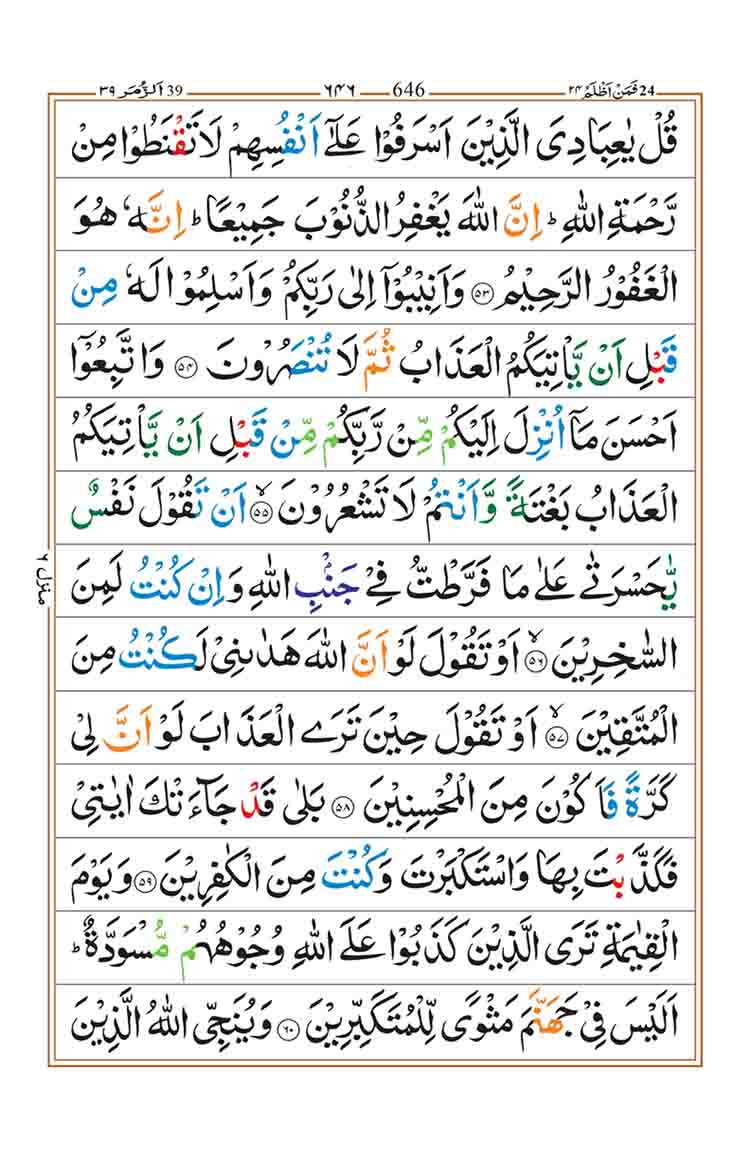 39 اَلزُّمَر ٣٩ 646 ٦٤٦ فَمَنْ اَظْلَمُ ٢٤ 24
قُلْ يٰعِبَادِىَ الَّذِيْنَ اَسْرَفُوْا عَلٰٓى اَنْفُسِهِمْ لَا تَقْنَطُوْا مِنْ
رَّحْمَةِ اللّٰهِ ؕ اِنَّ اللّٰهَ يَغْفِرُ الذُّنُوْبَ جَمِيْعًا ؕ اِنَّهٗ هُوَ
الْغَفُوْرُ الرَّحِيْمُ ۝٥٣ وَاَنِيْبُوْٓا اِلٰى رَبِّكُمْ وَاَسْلِمُوْا لَهٗ مِنْ
قَبْلِ اَنْ يَّاْتِيَكُمُ الْعَذَابُ ثُمَّ لَا تُنْصَرُوْنَ ۝٥٤ وَاتَّبِعُوْٓا
اَحْسَنَ مَاۤ اُنْزِلَ اِلَيْكُمْ مِّنْ رَّبِّكُمْ مِّنْ قَبْلِ اَنْ يَّاْتِيَكُمُ
الْعَذَابُ بَغْتَةً وَّاَنْتُمْ لَا تَشْعُرُوْنَ ۝٥٥ۙ اَنْ تَقُوْلَ نَفْسٌ
يّٰحَسْرَتٰى عَلٰى مَا فَرَّطْتُّ فِىْ جَنْۢبِ اللّٰهِ وَاِنْ كُنْتُ لَمِنَ
السّٰخِرِيْنَ ۝٥٦ۙ اَوْ تَقُوْلَ لَوْ اَنَّ اللّٰهَ هَدٰىنِىْ لَكُنْتُ مِنَ
الْمُتَّقِيْنَ ۝٥٧ۙ اَوْ تَقُوْلَ حِيْنَ تَرَى الْعَذَابَ لَوْ اَنَّ لِىْ
كَرَّةً فَاَكُوْنَ مِنَ الْمُحْسِنِيْنَ ۝٥٨ بَلٰى قَدْ جَآءَتْكَ اٰيٰتِىْ
فَكَذَّبْتَ بِهَا وَاسْتَكْبَرْتَ وَكُنْتَ مِنَ الْكٰفِرِيْنَ ۝٥٩ وَيَوْمَ
الْقِيٰمَةِ تَرَى الَّذِيْنَ كَذَبُوْا عَلَى اللّٰهِ وُجُوْهُهُمْ مُّسْوَدَّةٌ ؕ
اَلَيْسَ فِىْ جَهَنَّمَ مَثْوًى لِّلْمُتَكَبِّرِيْنَ ۝٦٠ وَيُنَجِّى اللّٰهُ الَّذِيْنَ
منزل ٦